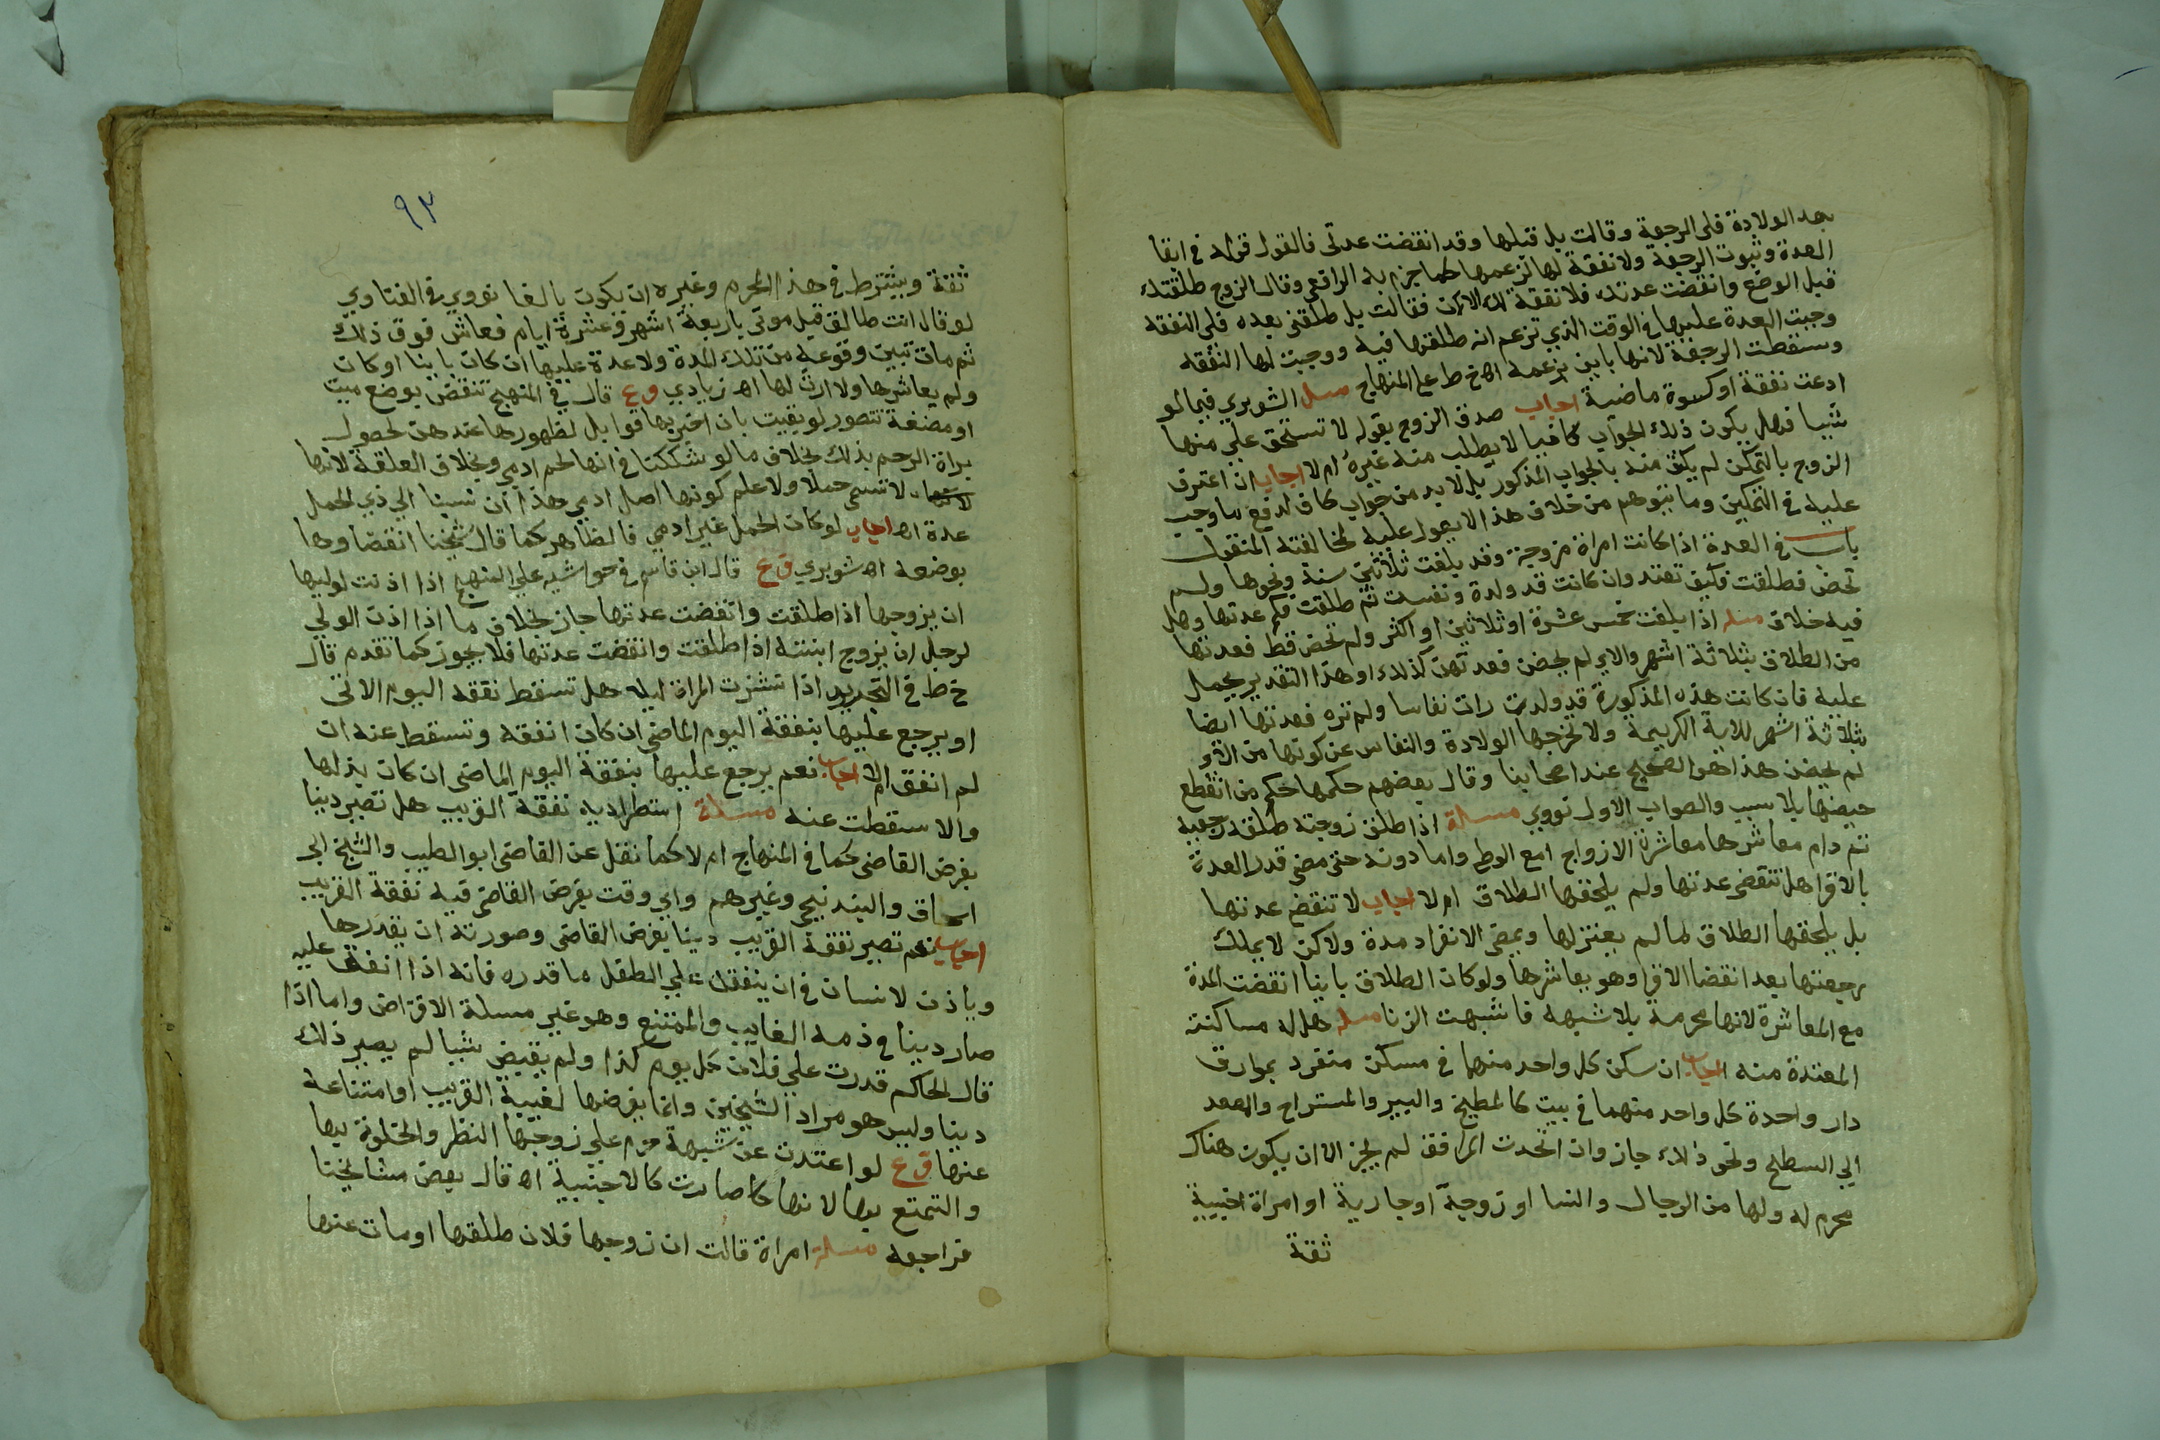 بعد الولادة فلى الرجعة وقالت بل قبلها وقد انقضت عدتى فالقول قوله في ابقا
العدة وثبوت الرجعة ولا نفقة لها لزعمها كما جزم به الرافعى وقال الزوج طلقتك
قبل الوضع وانقضت عدتك فلا نفقة لك الان فقالت بل طلقتنى بعده فلى النفقه
وجبت العدة عليها في الوقت الذي تزعم انه طلقها فيه ووجبت لها النفقه
وسقطت الرجعة لانها باين بزعمه اه خ ط على المنهاج مسله الشوبري فيما لو
ادعت نفقة او كسوة ماضية اجاب صدق الزوج بقوله لا تستحق علي منها
شيا فهل يكون ذلك الجواب كافيا لا يطلب منه غيره ام لا اجاب ان اعترف
الزوج بالتمكن لم يكف منه بالجواب المذكور بل لا بد من جواب كاف لدفع ما وجب
عليه في التمكين وما يتوهم من خلاف هذا لا يعول عليه لمخالفته المنقول
باب في العدة اذا كانت امراة مزوجة وقد بلغت ثلاثين سنة ونحوها ولم
تحض فطلقت فكيف تعتد وان كانت قد ولدة ونفست ثم طلقت فكم عدتها وهل
فيه خلاف مسله اذا بلغت خمس عشرة او ثلاثين او اكثر ولم تحض قط فعدتها
من الطلاق بثلاثة اشهر والاي لم يحضن فعدتهن كذلك او هذا التقدير يحمل
عليه فان كانت هذه المذكورة قد ولدت رات نفاسا ولم تره فعدتها ايضا
بثلاثة اشهر للاية الكريمة ولا تخرجها الولادة والنفاس عن كونها من الاو
لم يحضن هذا هو الصحيح عند اصحابنا وقال بعضهم حكمها حكم من انقطع
حيضها بلا سبب والصواب الاول نووي مسـلة اذا طلق زوجته طلقة رجعية
ثم دام معاشرها معاشرة الازواج امع الوطى واما دونه حتى مضى قدر العدة
بالاقرا هل تنقضى عدتها ولم يلحقها الطلاق ام لا اجاب لا تنقض عدتها
بل يلحقها الطلاق ما لم يعتزلها وبمضى الانفراد مدة ولاكن لا يملك
رجعتها بعد انقضا الاقرا وهو يعاشرها ولو كان الطلاق باينا انقضت المدة
مع المعاشرة لانها محرمة بلا شبهه فاشبهت الزنا مسله هل له مساكنة
المعتدة منه اجاب ان سكن كل واحد منهما في مسكن منفرد بمرافق
دار واحدة كل واحد منهما في بيت كالمطبخ والبير والمستراح والمصعد
الي السطح ونحو ذلك جاز وان اتحدت المرافق لم يجز الا ان يكون هناك
محرم له ولها من الرجال والنسا او زوجة او جارية او امراة اجنبية
ثقة
٩٣
ثقة ويشترط في هذا المحرم وغيره ان يكون بالغا نووي في الفتاوي
لو قال انت طالق قبل موتى باربعة اشهر وعشرة ايام فعاش فوق ذلك
ثم مات تبين وقوعه من تلك المدة ولا عدة عليها ان كان باينا او كان
ولم يعاشرها ولا ارث لها اه زيادي وع قال في المنهج تنقض بوضع ميت
او مضغة تتصور لو بقيت بان اخبر بها قوابل لظهورها عندهن لحصول
براة الرحم بذلك بخلاف ما لو شككنا في انها لحم ادمي وبخلاف العلقة لانها
لا تسمى حملا ولا علم كونها اصل ادمي هذا ان نسبنا الي ذي الحمل
عدة اه اجاب لو كان الحمل غير ادمي فالظاهر كما قال شيخنا انقضاوها
بوضعه اه شوبري ق ع قال ابن قاسم في حواشيه على المنهج اذا اذنت لوليها
ان يزوجها اذا طلقت وانقضت عدتها جاز بخلاف ما اذا اذن الولي
لرجل ان يزوج ابنته اذا طلقت وانقضت عدتها فلا يجوز كما تقدم قال
خ ط في التجريد اذا نشزت المراة ليلا هل تسقط نفقه اليوم الاتى
او يرجع عليها بنفقة اليوم الماضي ان كان انفقه وتسقط عنه ان
لم انفق ام لا اجاب نعم يرجع عليها بنفقة اليوم الماضى ان كان بذلها
والا سقطت عنه مسـلة استطراديه نفقة القريب هل تصير دينا
بفرض القاضى كما في المنهاج ام لا كما نقل عن القاضى ابو الطيب والشيخ ابى
اسحاق والبندنيجي وغيرهم واي وقت يفرض القاضى فيه نفقة القريب
اجاب نعم تصير نفقة القريب دينا بفرض القاضى وصورته ان يقدرها
وياذن لانسان في ان ينفقك علي الطفل ما قدره فانه اذا انفق عليه
صار دينا في ذمه الغايب والممتنع وهو غير مسلة الاقتراض واما اذا
قال الحاكم قدرت علي فلان كل يوم كذا ولم يقبض شيا لم يصير ذلك
دينا وليس هو مراد الشيخين وانما يفرضها لغيبة القريب او امتناعه
عنها ق ع لو اعتدت عن شبهة حرم على زوجها النظر والخلوة بها
والتمتع بها لانها كا صارت كالاجنبية اه قال بعض مشايخنا
فراجعه مسلة امراة قالت ان زوجها فلان طلقها او مات عنها